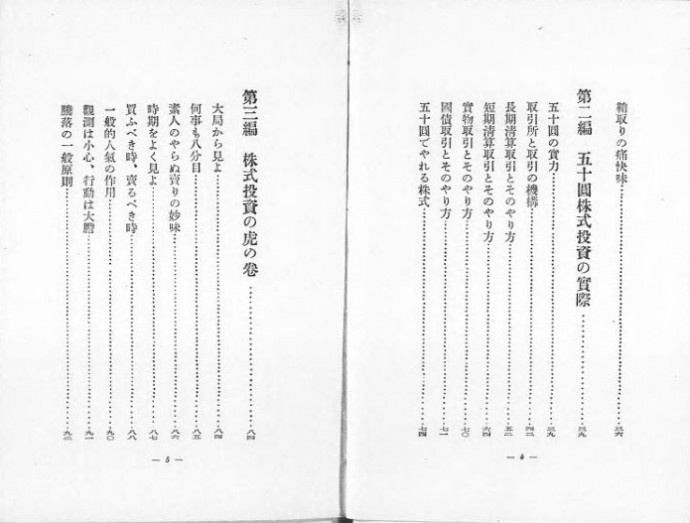 鞘取りの痛快味……三六
第二編 五十圓株式投資の實際……三九
五十圓の實力……三九
取引所と取引の機構……四三
長期清算取引とそのやり方……五三
短期清算取引とそのやり方……六四
實物取引とそのやり方……七〇
國債取引とそのやり方……七一
五十圓でやれる株式……七四
— 4 —
第三編 株式投資の虎の卷……八四
大局から見よ……八四
何事も八分目……八五
素人のやらぬ賣りの妙味……八六
時期をよく見よ……八七
買ふべき時、賣るべき時……八八
一般的人氣の作用……九〇
觀測は小心、行動は大膽……九一
騰落の一般原則……九三
— 5 —